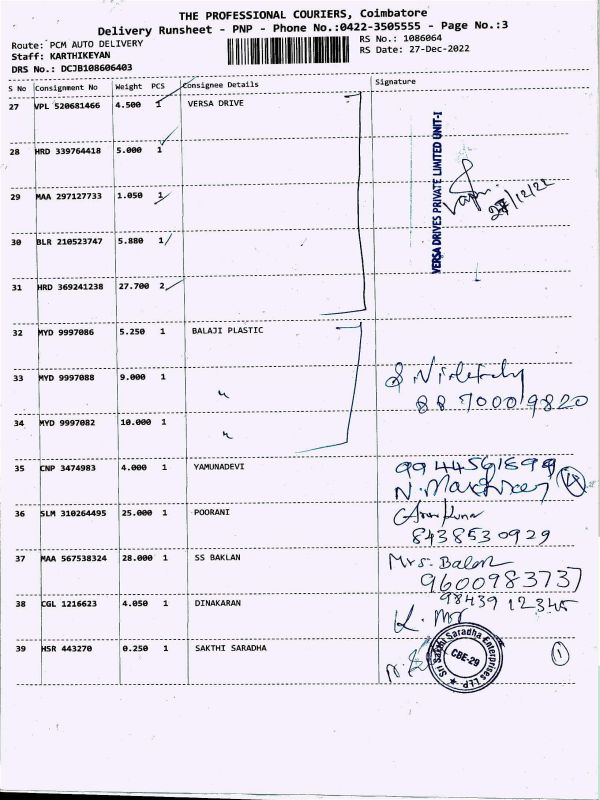 THE PROFESSIONAL COURIERS, Coimbatore
Delivery Runsheet - PNP - Phone No.:0422-3505555 - Page No.:3
Route: PCM AUTO DELIVERY
RS No.: 1086064
Staff: KARTHIKEYAN
RS Date: 27-Dec-2022
DRS No.: DCJB108606403
S No Consignment No Weight PCS Consignee Details Signature
27 VPL 520681466 4.500 1 VERSA DRIVE
28 HRD 339764418 5.000 1
29 MAA 297127733 1.050 1
30 BLR 210523747 5.880 1
31 HRD 369241238 27.700 2
VERSA DRIVES PRIVATE LIMITED UNIT-I
27/12/22
32 MYD 9997086 5.250 1 BALAJI PLASTIC
33 MYD 9997088 9.000 1 "
88 70009820
34 MYD 9997082 10.000 1 "
35 CNP 3474983 4.000 1 YAMUNADEVI
36 SLM 310264495 25.000 1 POORANI
8438530929
37 MAA 567538324 28.000 1 SS BAKLAN
9600983737
38 CGL 1216623 4.050 1 DINAKARAN
98439 12345
39 HSR 443270 0.250 1 SAKTHI SARADHA
Sri Sakthi Saradha Enterprises LLP
CBE-29
1